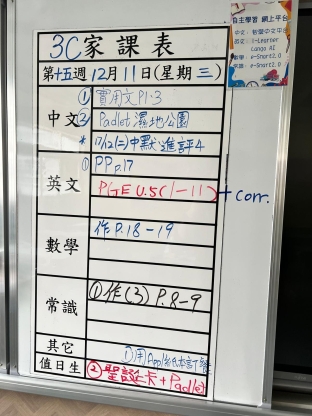 3C家課表
第十五週12月11日(星期三)
自主學習 網上平台
中文: 智愛中文平台
英文: i-Learner
Lango AI
數學: e-Smart2.0
常識: e-Smart2.0
中文
① 實用文P1-3
② Padlet濕地公園
* 17/12(二)中默進評4
英文
① PP p.17
PGE U.5(1-11) + corr.
數學
作P.18-19
常識
①作(3) P.8-9
其它
值日生
②聖誕卡+Padlet